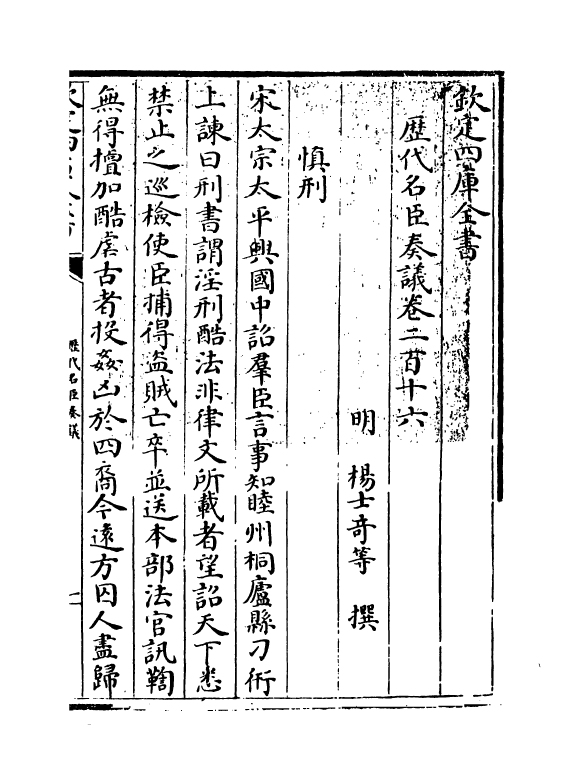 欽定四庫全書
歴代名臣奏議卷二百十六
明 楊士竒等 撰
慎刑
宋太宗太平興國中詔羣臣言事知睦州桐廬縣刁衎
上諫曰刑書謂淫刑酷法非律文所載者望詔天下悉
禁止之巡檢使臣捕得盗賊亡卒並送本部法官訊鞫
無得擅加酷虐古者投姦凶於四裔今遠方囚人盡歸
歴代名臣奏議